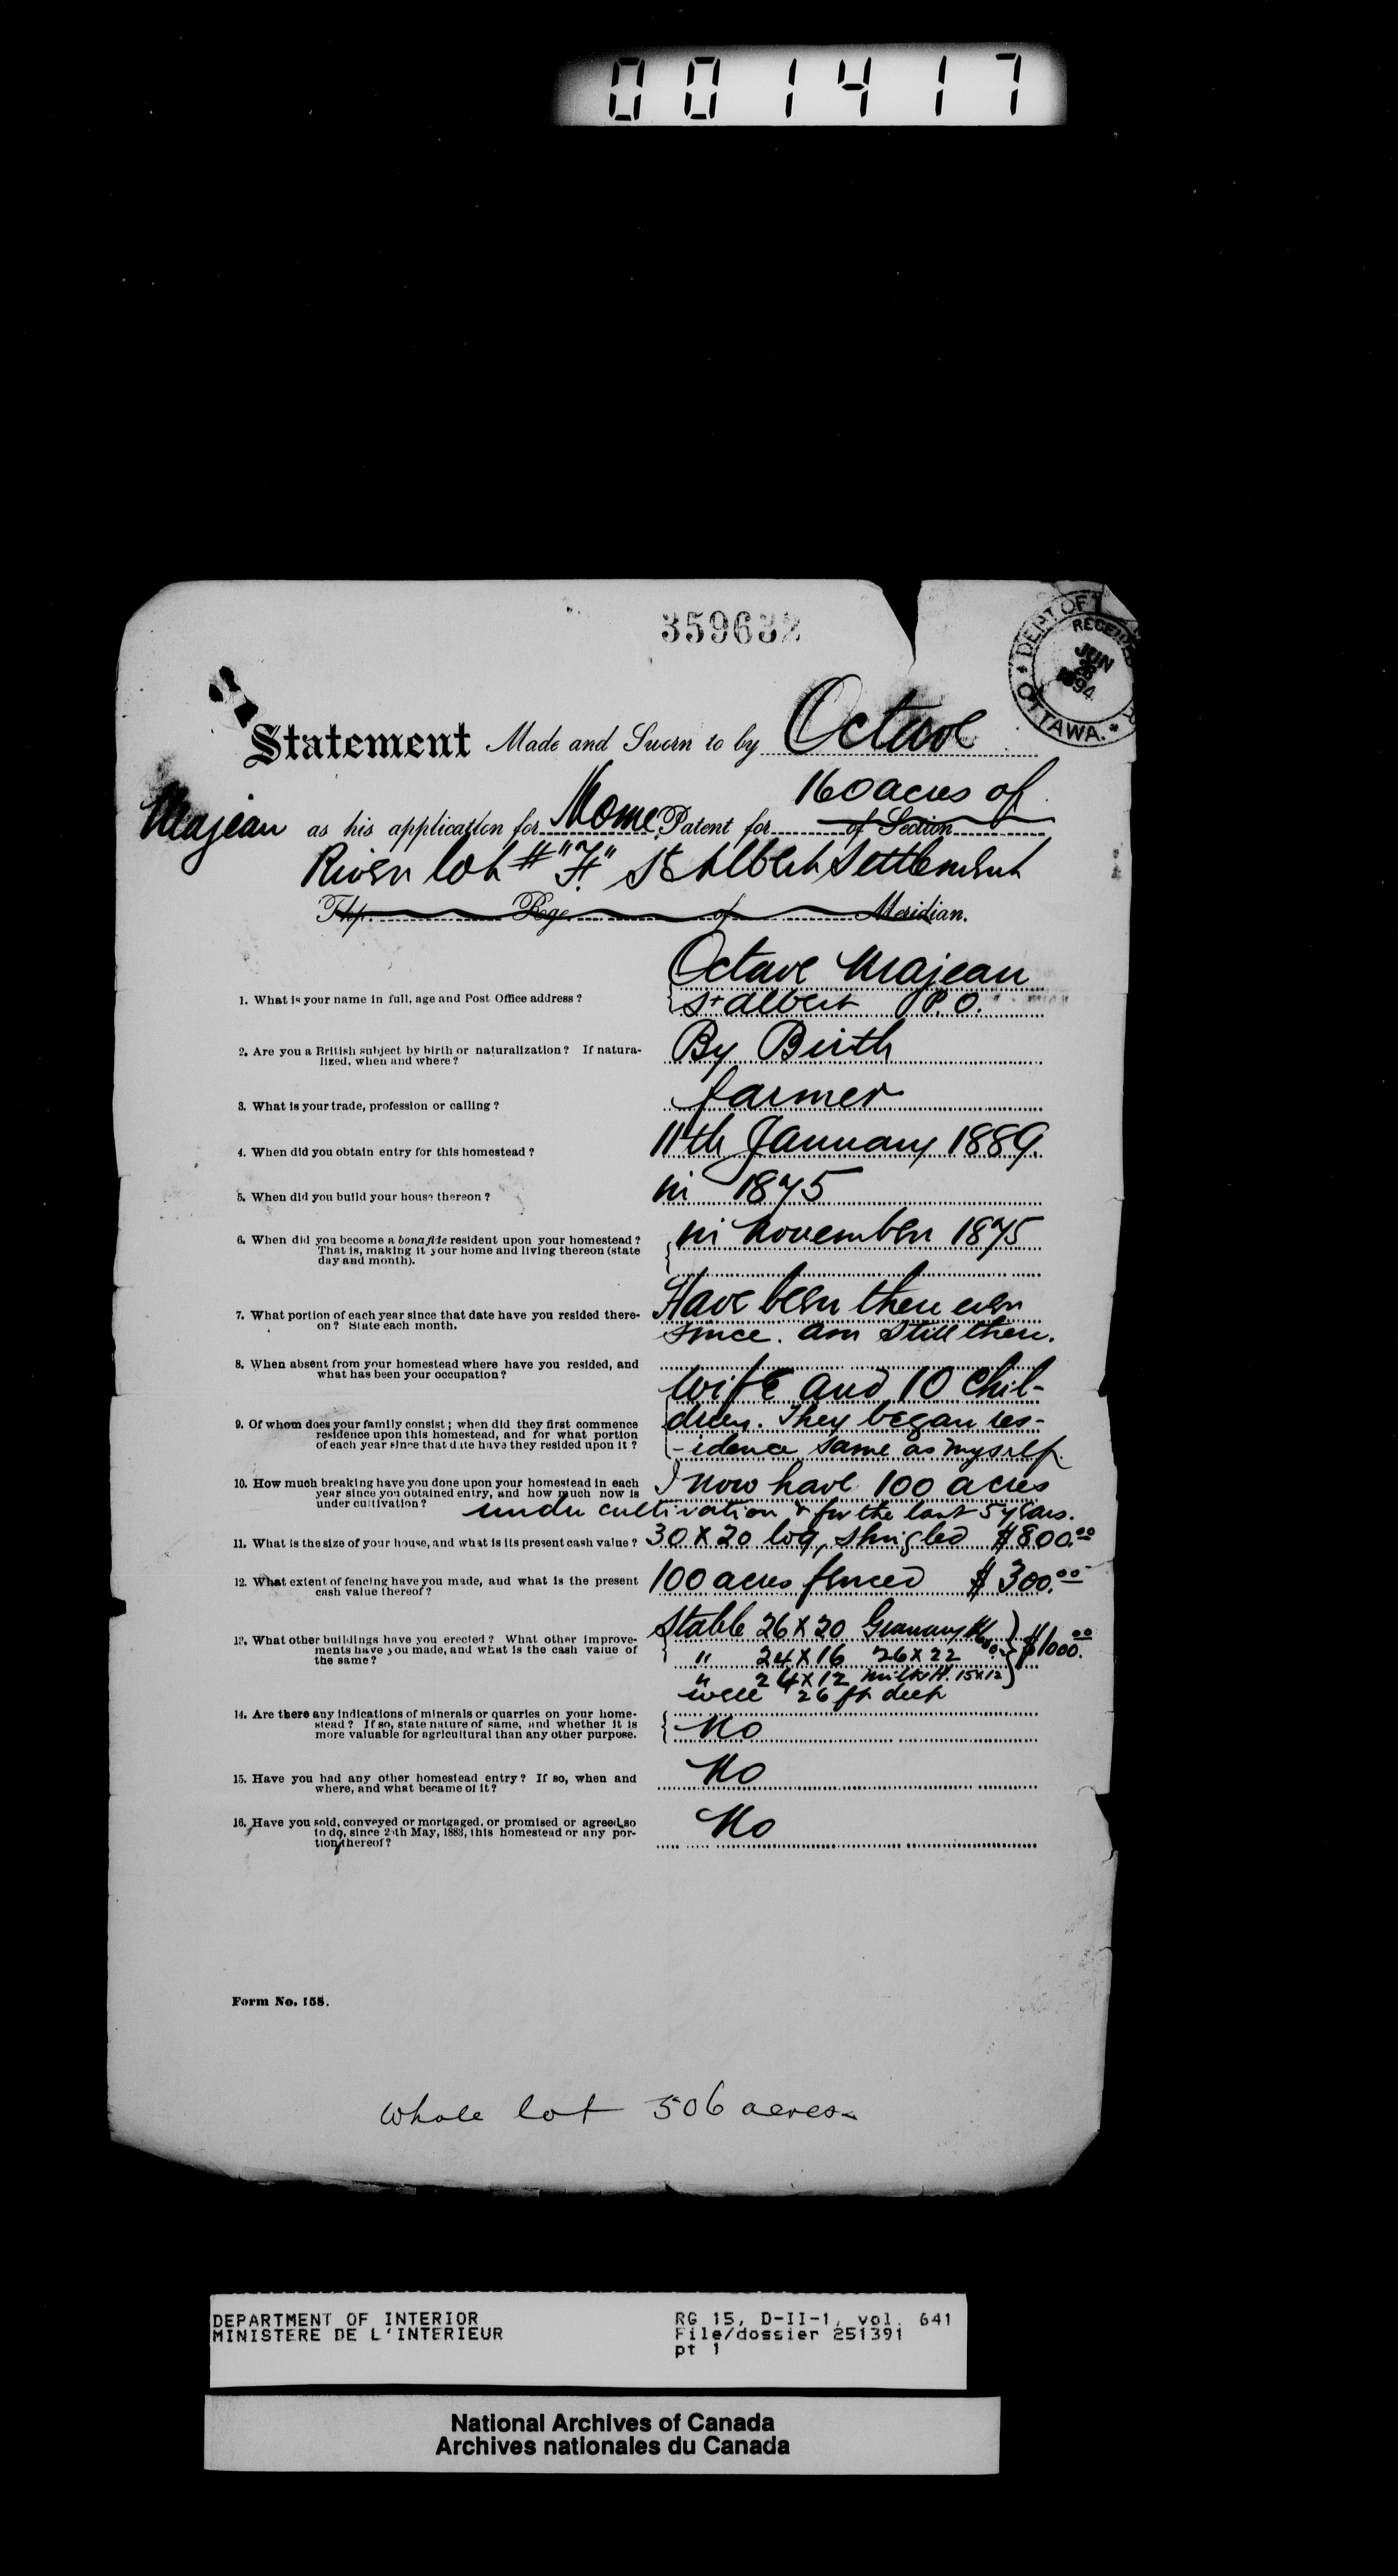 001417
359632
DEPT OF
RECEIVED
JUN
1894
OTTAWA.
Statement Made and Sworn to by Octave
160 acres of
Majeau as his application for Home Patent for of Section
River lot # "F" St Albert Settlement
Twp. Rge. of Meridian.
Octave Majeau
1. What is your name in full, age and Post Office address?
St Albert P.O.
2. Are you a British subject by birth or naturalization? If natura- By Birth
lized, when and where?
3. What is your trade, profession or calling? farmer
4. When did you obtain entry for this homestead? 11th January 1889.
5. When did you build your house thereon? in 1875
6. When did you become a bona fide resident upon your homestead? in November 1875
That is, making it your home and living thereon (state
day and month).
7. What portion of each year since that date have you resided there- Have been there ever
on? State each month. since. am still there.
8. When absent from your homestead where have you resided, and
what has been your occupation?
wife and 10 chil-
9. Of whom does your family consist; when did they first commence dren. They began res-
residence upon this homestead, and for what portion
of each year since that date have they resided upon it? -idence same as myself.
10. How much breaking have you done upon your homestead in each I now have 100 acres
year since you obtained entry, and how much now is
under cultivation? under cultivation & for the last 5 years.
11. What is the size of your house, and what is its present cash value? 30 X 20 log, shingled $800.00
12. What extent of fencing have you made, and what is the present 100 acres fenced $300.00
cash value thereof?
Stable 26 X 20 Granary
13. What other buildings have you erected? What other improve- $1000.00
ments have you made, and what is the cash value of " 24 X 16 26 X 22
the same?
" 24 X 12 Milk H. 15 X 12
well 26 ft deep
14. Are there any indications of minerals or quarries on your home-
stead? If so, state nature of same, and whether it is No
more valuable for agricultural than any other purpose.
15. Have you had any other homestead entry? If so, when and No
where, and what became of it?
16. Have you sold, conveyed or mortgaged, or promised or agreed so No
to do, since 25th May, 1883, this homestead or any por-
tion thereof?
Form No. 158.
Whole lot 506 acres
DEPARTMENT OF INTERIOR RG 15, D-II-1, vol. 641
MINISTERE DE L'INTERIEUR File/dossier 251391
pt 1
National Archives of Canada
Archives nationales du Canada